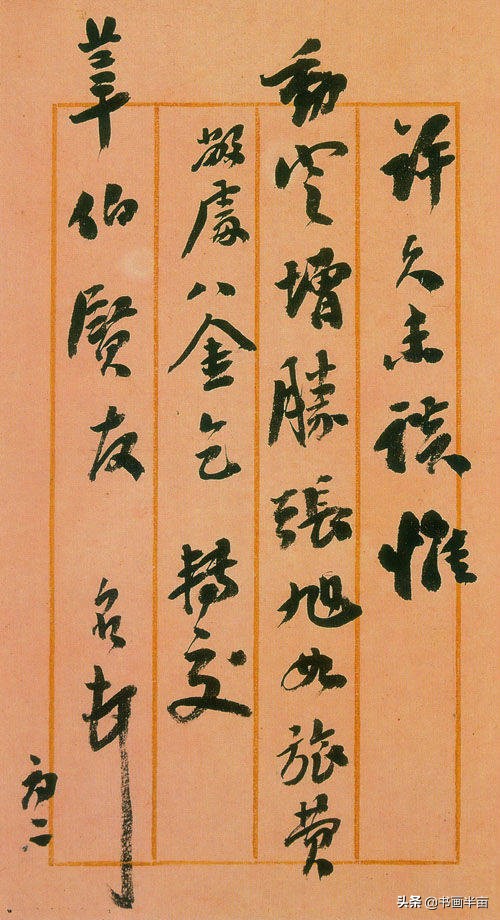 許久未談惟
動定增勝張旭如旅費
敝處八金乞轉交
莘伯賢友 名
初二
头条 @书画半亩